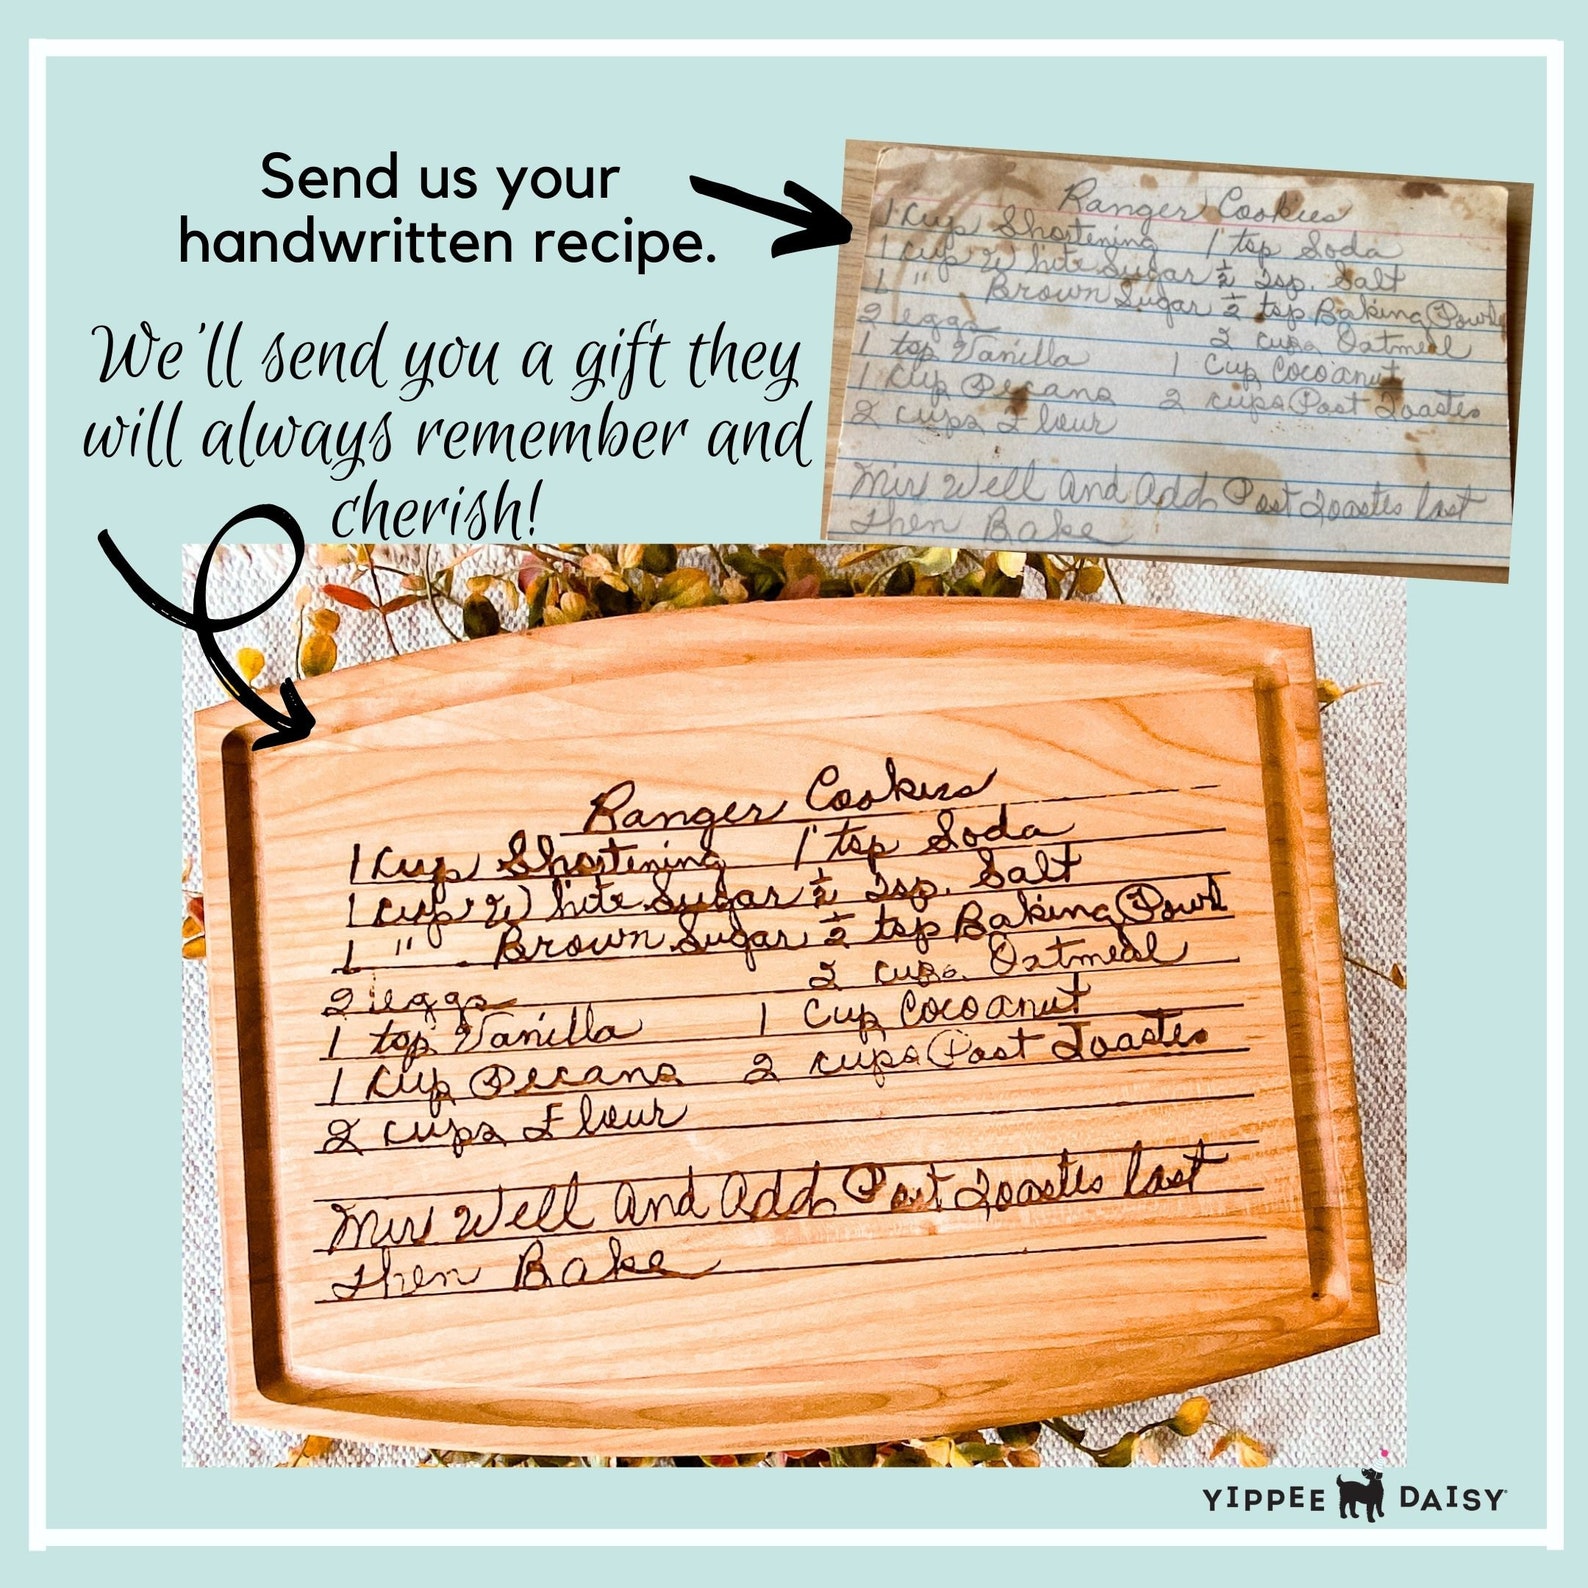 Send us your
handwritten recipe.
We'll send you a gift they
will always remember and
cherish!
Ranger Cookies
1 Cup Shortening 1 tsp Soda
1 cup White Sugar ½ tsp. Salt
1 " Brown Sugar ½ tsp Baking Powde
2 eggs 2 cups Oatmeal
1 tsp Vanilla 1 Cup Cocoanut
1 Cup Pecans 2 cups Post Toastes
2 cups Flour
Mix Well And Add Post Toastes last
then Bake
Ranger Cookies
1 Cup Shortening 1 tsp Soda
1 cup White Sugar ½ tsp. Salt
1 " Brown Sugar ½ tsp Baking Powd
2 eggs 2 cups Oatmeal
1 tsp Vanilla 1 Cup Cocoanut
1 Cup Pecans 2 cups Post Toastes
2 cups Flour
Mix Well And Add Post Toastes last
then Bake
YIPPEE DAISY